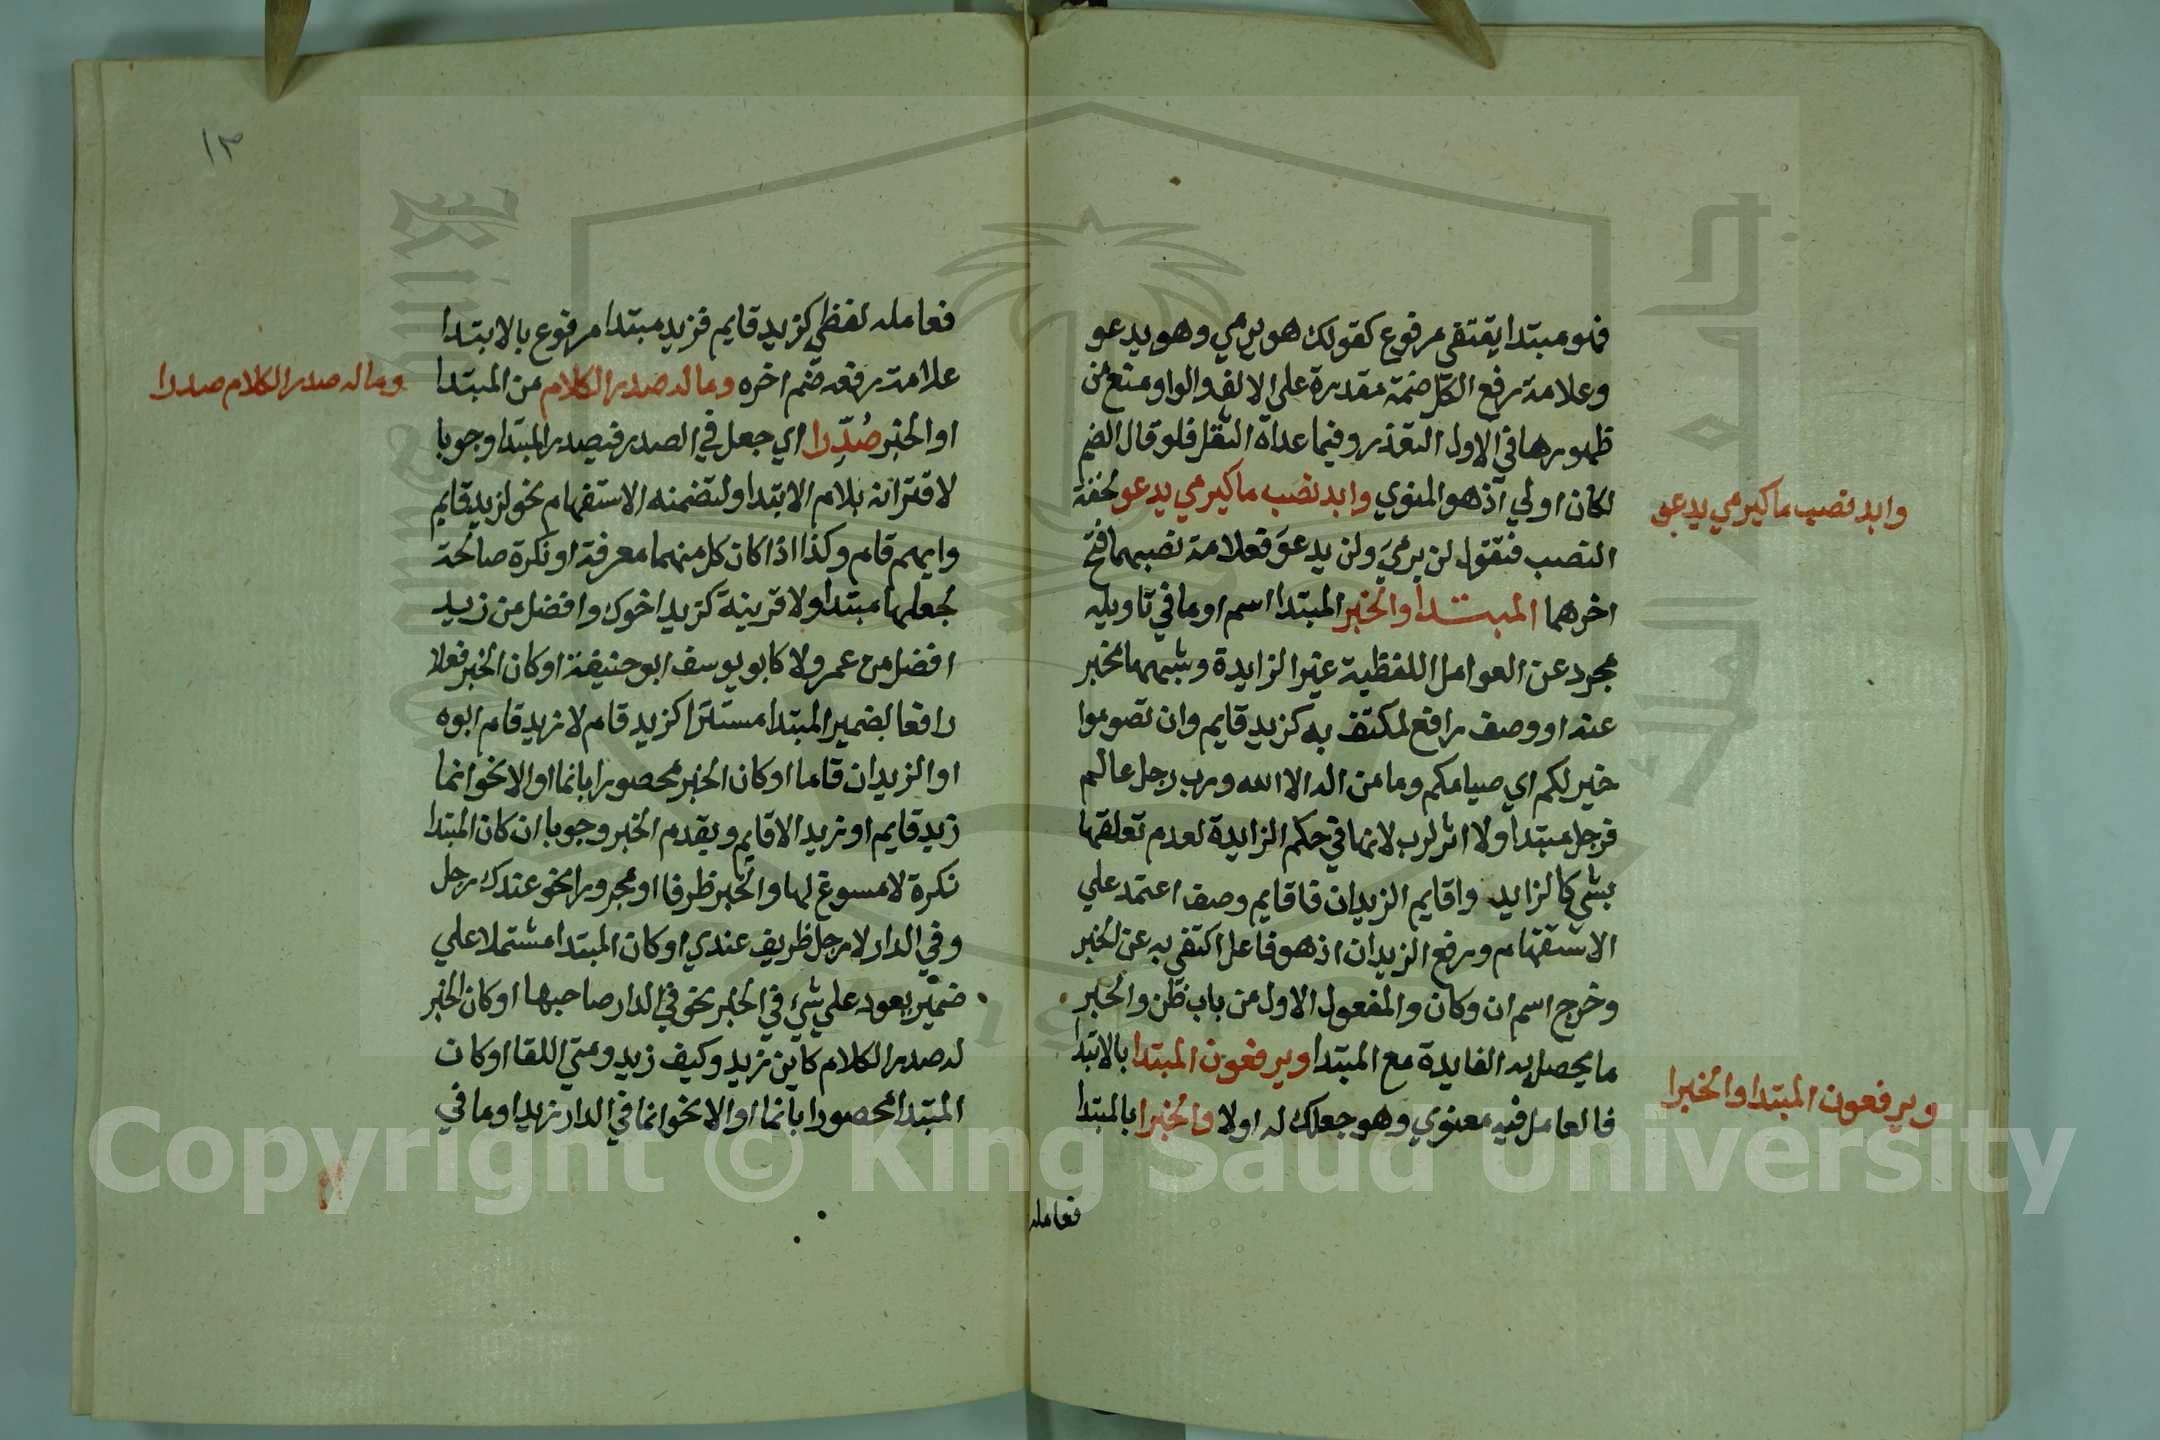 فنومبتدا يقتفى مرفوع كقولك هو يرمي وهو يدعو
وعلامة رفع الكل ضمة مقدرة على الالف والواو ومنع من
ظهورها في الاول التعذر وفيما عداه الثقل فلو قال الضم
لكان اولي اذ هو المنوي وابد نصب ما كيرمي يدعو لخفة
وابد نصب ما كيرمي يدعو
النصب فنقول لن يرميَ ولن يدعوَ فعلامة نصبهما فتح
اخرهما المبتدا والخبر المبتدا اسم او ما في تاويله
مجرد عن العوامل اللفظية غير الزايدة وشبهها مخبر
عنه او وصف رافع لمكتف به كزيد قايم وان تصوموا
خير لكم اي صيامكم وما من اله الا الله ورب رجل عالم
فرجل مبتدا ولا اثر لرب لانها في حكم الزايدة لعدم تعلقها
بشي كالزايد واقايم الزيدان فاقايم وصف اعتمد علي
الاستفهام ورفع الزيدان اذ هو فاعل اكتفي به عن الخبر
وخرج اسم ان وكان والمفعول الاول من باب ظن والخبر
ما يحصل به الفايدة مع المبتدا ويرفعون المبتدا بالابتدا
ويرفعون المبتدا والخبرا
فالعامل فيه معنوي وهو جعلك له اولا والخبرا بالمبتدا
فعامله
١٣
فعامله لفظي كزيد قايم فزيد مبتدا مرفوع بالابتدا
علامة رفعه ضم اخره وما له صدر الكلام من المبتدا
وما له صدر الكلام صدرا
او الخبر صُدِّرا اي جعل في الصدر فيصدر المبتدا وجوبا
لاقترانه بلام الابتدا ولتضمنه الاستفهام نحو لزيد قايم
وايهم قام وكذا اذا كان كل منهما معرفة او نكرة صالحة
لجعلها مبتدا ولا قرينة كزيد اخوك وافضل من زيد
افضل من عمرو لا كابو يوسف ابو حنيفة او كان الخبر فعلا
رافعا لضمير المبتدا مستترا كزيد قام لا زيد قام ابوه
او الزيدان قاما او كان الخبر محصورا بانما او الا نحو انما
زيد قايم او زيد الا قايم ويقدم الخبر وجوبا ان كان المبتدا
نكرة لا مسوغ لها والخبر ظرفا او مجرورا نحو عندك رجل
وفي الدار لا رجل ظريف عندي او كان المبتدا مشتملا علي
ضمير يعود علي شيء في الخبر نحو في الدار صاحبها او كان الخبر
له صدر الكلام كاين زيد وكيف زيد ومتي اللقا او كان
المبتدا محصورا بانما او الا نحو انما في الدار زيد او ما في
Copyright © King Saud University